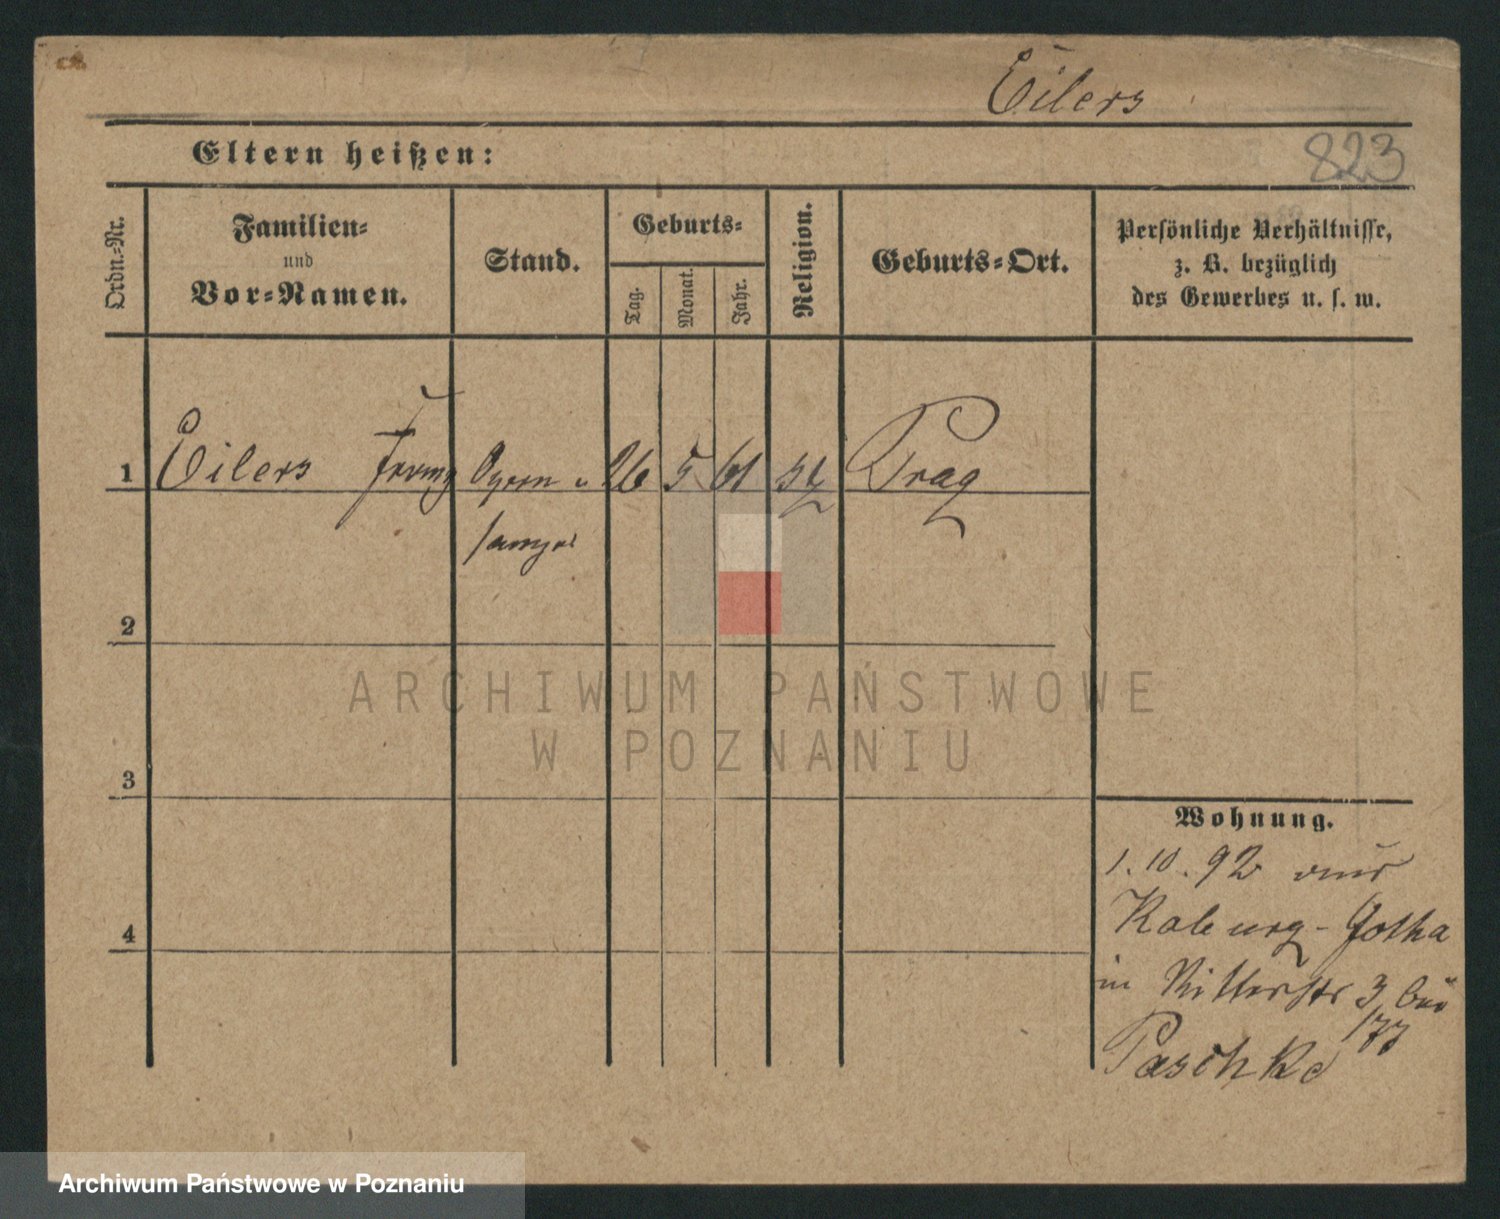 Eilers
Eltern heißen:
823
Ordn.-Nr.
Familien-
und
Vor-Namen.
Stand.
Geburts-
Tag.
Monat.
Jahr.
Religion.
Geburts-Ort.
Persönliche Verhältnisse,
z. B. bezüglich
des Gewerbes u. s. w.
1 Eilers Franz Opern 26 5 61 Prag
2
3
4
Wohnung.
1. 10. 92 aus
Koburg-Gotha
in Ritterstr 3 bei
Paschke 177
ARCHIWUM PAŃSTWOWE
W POZNANIU
Archiwum Państwowe w Poznaniu